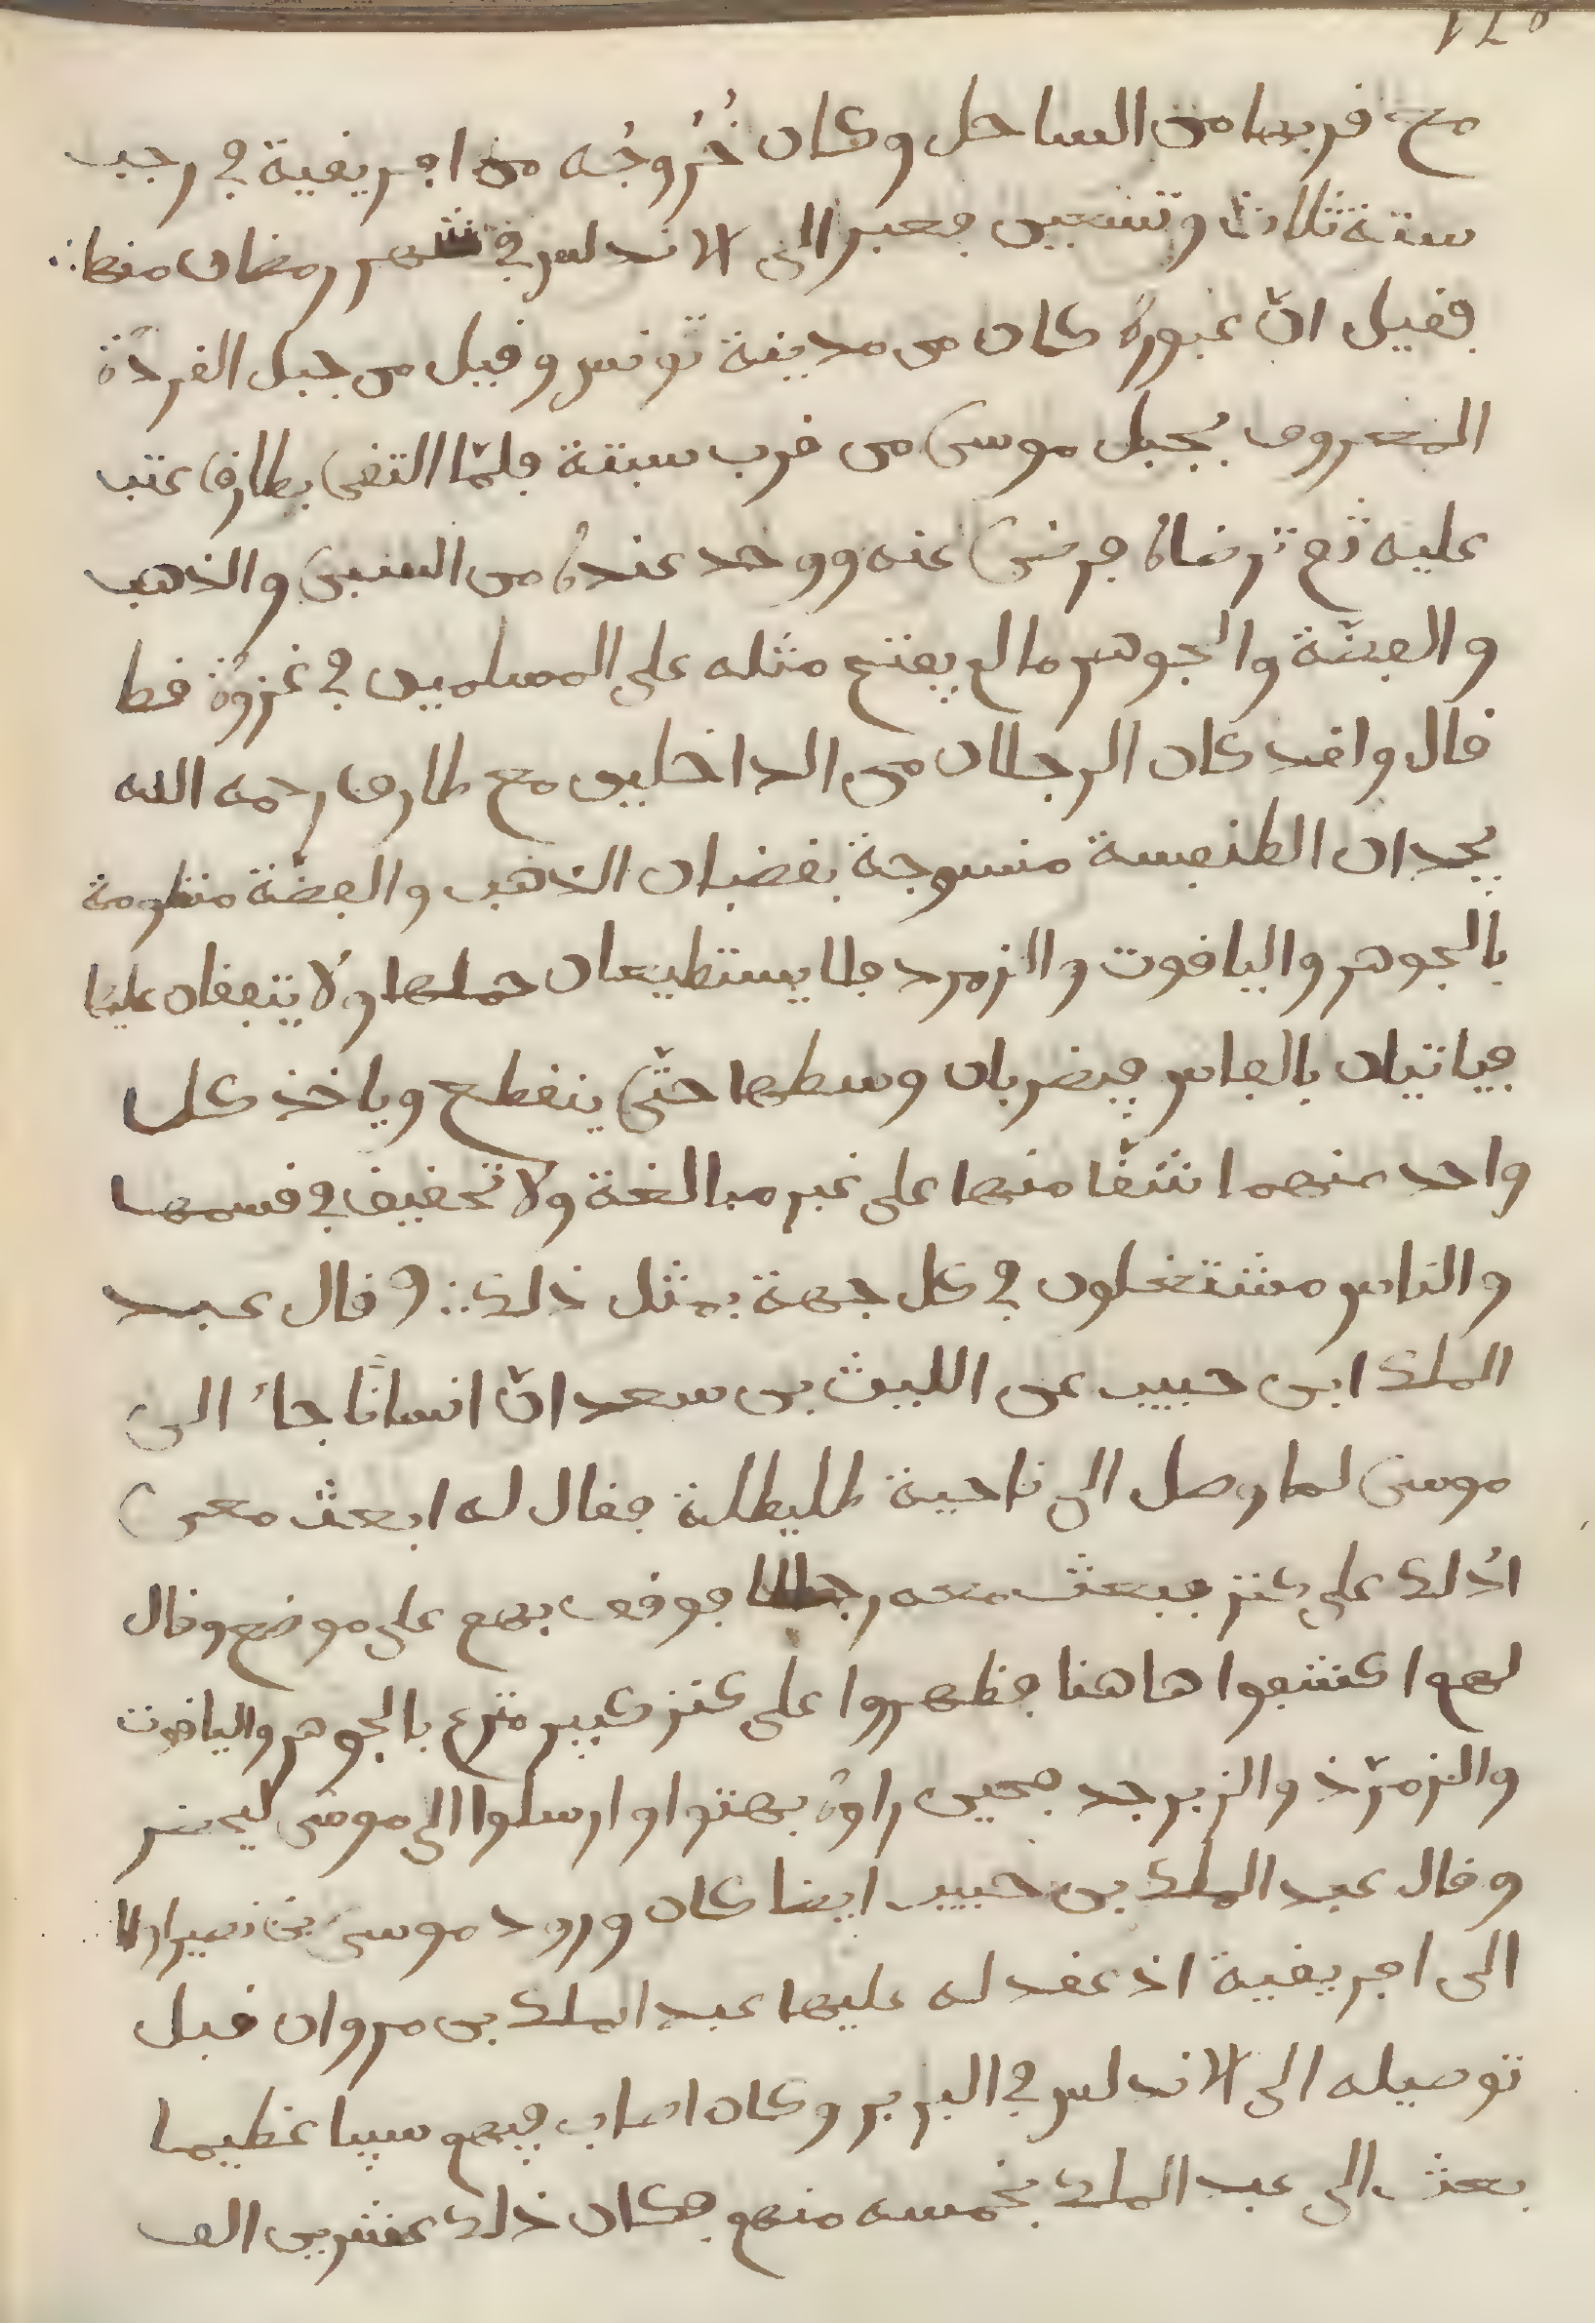 مع قربها من الساحل وكان خُرُوجُه من افريقية في رجب
سنة ثلاث وتسعين فعبر الى الاندلس في شهر رمضان منها
فقيل انّ عبوره كان من مدينة تونس وقيل من جبل القردة
المعروف بجبل موسى من قرب سبتة فلمّا التقى بطارق عتب
عليه ثم ترضاه فرضى عنه ووجد عنده من السبى والذهب
والفضّة والجوهر ما لم يفتح مثله على المسلمين في غزوة قط
قال ولقد كان الرجلان من الداخلين مع طارق رحمه الله
يجدان الطنفسة منسوجة بقضبان الذهب والفضّة منظومة
بالجوهر والياقوت والزمرد فلا يستطيعان حملها ولا يتفقان عليها
فياتيان بالفاس فيضربان وسطها حتّى ينقطع وياخذ كل
واحد منهما شقّا منها على غير مبالغة ولا تحقيق في قسمها
والناس مشتغلون في كل جهة بمثل ذلك وقال عبد
الملك ابن حبيب عن الليث بن سعد انّ انسانًا جاء الى
موسى لما وصل الى ناحية طليطلة فقال له ابعث معى
ادُلك على كنز فبعث معه رجالا فوقف بهم على موضع وقال
لهم اكشفوا هاهنا فظهروا على كنز كبير مترع بالجوهر والياقوت
والزمرّذ والزبرجد فحين راوه بهتوا وارسلوا الى موسى ليحضر
وقال عبد الملك بن حبيب ايضا كان ورود موسى بن نصير اولا
الى افريقية اذ عقد له عليها عبد الملك بن مروان قبل
توصيله الى الاندلس في البربر وكان اصاب فيهم سبيا عظيما
بعث الى عبد الملك بخمسه منهم فكان ذلك عشرين الف